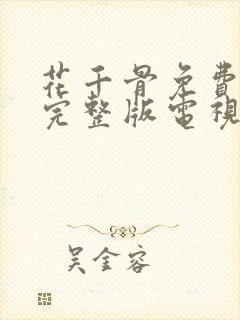 花千骨免費
完整版電視
吳金容